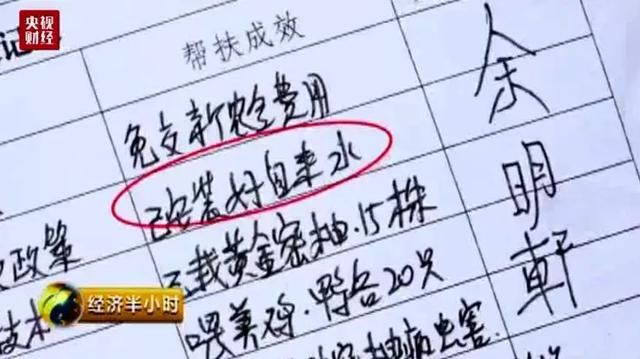 央视
财经
记
帮扶成效
免交新农合费用
已安装好自来水
政策
已栽黄金蜜柚15株
技术
喂美鸡·鸭各20只
病虫害
余明轩
经济半小时